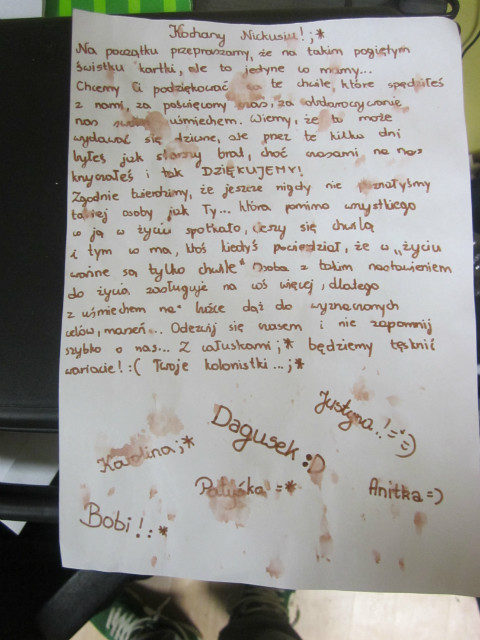 Kochany Nickusiu! ;*
Na początku przepraszamy, że na takim pogiętym
świstku kartki, ale to jedyne co mamy...
Chcemy Ci podziękować za te chwile, które spędziłeś
z nami, za poświęcony czas, za obdarowywanie
nas swoim uśmiechem. Wiemy, że to może
wydawać się dziwne, ale przez te kilka dni
byłeś jak starszy brat, choć czasami, na nas
krzyczałeś i tak DZIĘKUJEMY!
Zgodnie twierdzimy, że jeszcze nigdy nie poznałyśmy
takiej osoby jak Ty... która pomimo wszystkiego
co ją w życiu spotkało, cieszy się chwilą
i tym co ma, ktoś kiedyś powiedział, że w "życiu
ważne są tylko chwile" Osoba z takim nastawieniem
do życia zasługuje na coś więcej, dlatego
z uśmiechem na dąż do wyznaczonych
celów, marzeń... Odezwij się czasem i nie zapomnij
szybko o nas... Z całuskami ;* będziemy tęsknić
wariacie! :( Twoje kolonistki...;*
Justyna..! =*=)
Dagusek :D
Karolina ;*
Patyśka =*
Anitka =)
Bobi ! : *